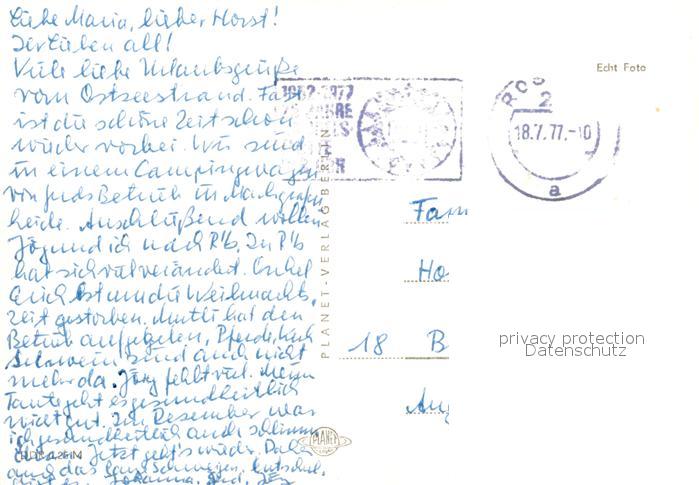 Liebe Maria, lieber Horst!
Ihr Lieben all!
Viele liebe Urlaubsgrüße
vom Ostseestrand. Fast
ist die schöne Zeit schon
wieder vorbei. Wir sind
in einem Campingwagen
von Betrieb in
heide. Anschließend wollen
Jörg und ich nach R'b. In R'b
hat sich viel verändert. Onkel
Erich ist um die Weihnachts
zeit gestorben. hat den
Betrieb aufgegeben, Pferde, Kuh
Schwein sind auch nicht
mehr da. Jörg fehlt viel. Meiner
Tante geht es gesundheitlich
nicht gut. Im Dezember war
ich gesundheitlich auch schlimm
Jetzt geht's wieder. Daher
auch das lange Schweigen, Entschul
Johanna, und
Echt Foto
1977
ROS
2
18.7.77.-10
a
PLANET-VERLAG BERLIN
Fam
Ho
18 B
privacy protection
Datenschutz
PLANET